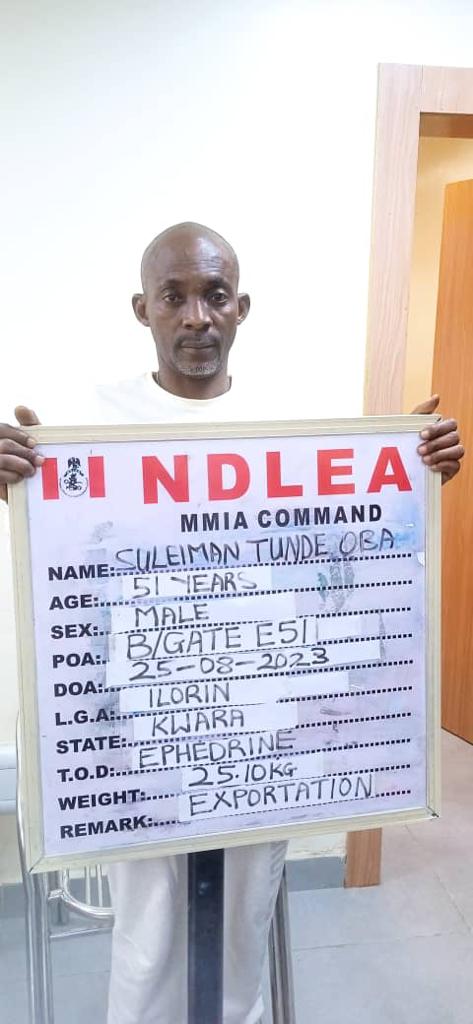 NDLEA
MMIA COMMAND
NAME: SULEIMAN TUNDE OBA
AGE: 51 YEARS
SEX: MALE
POA: B/GATE E511
DOA: 25-08-2023
L.G.A: ILORIN
STATE: KWARA
T.O.D: EPHEDRINE
WEIGHT: 25.10KG
REMARK: EXPORTATION